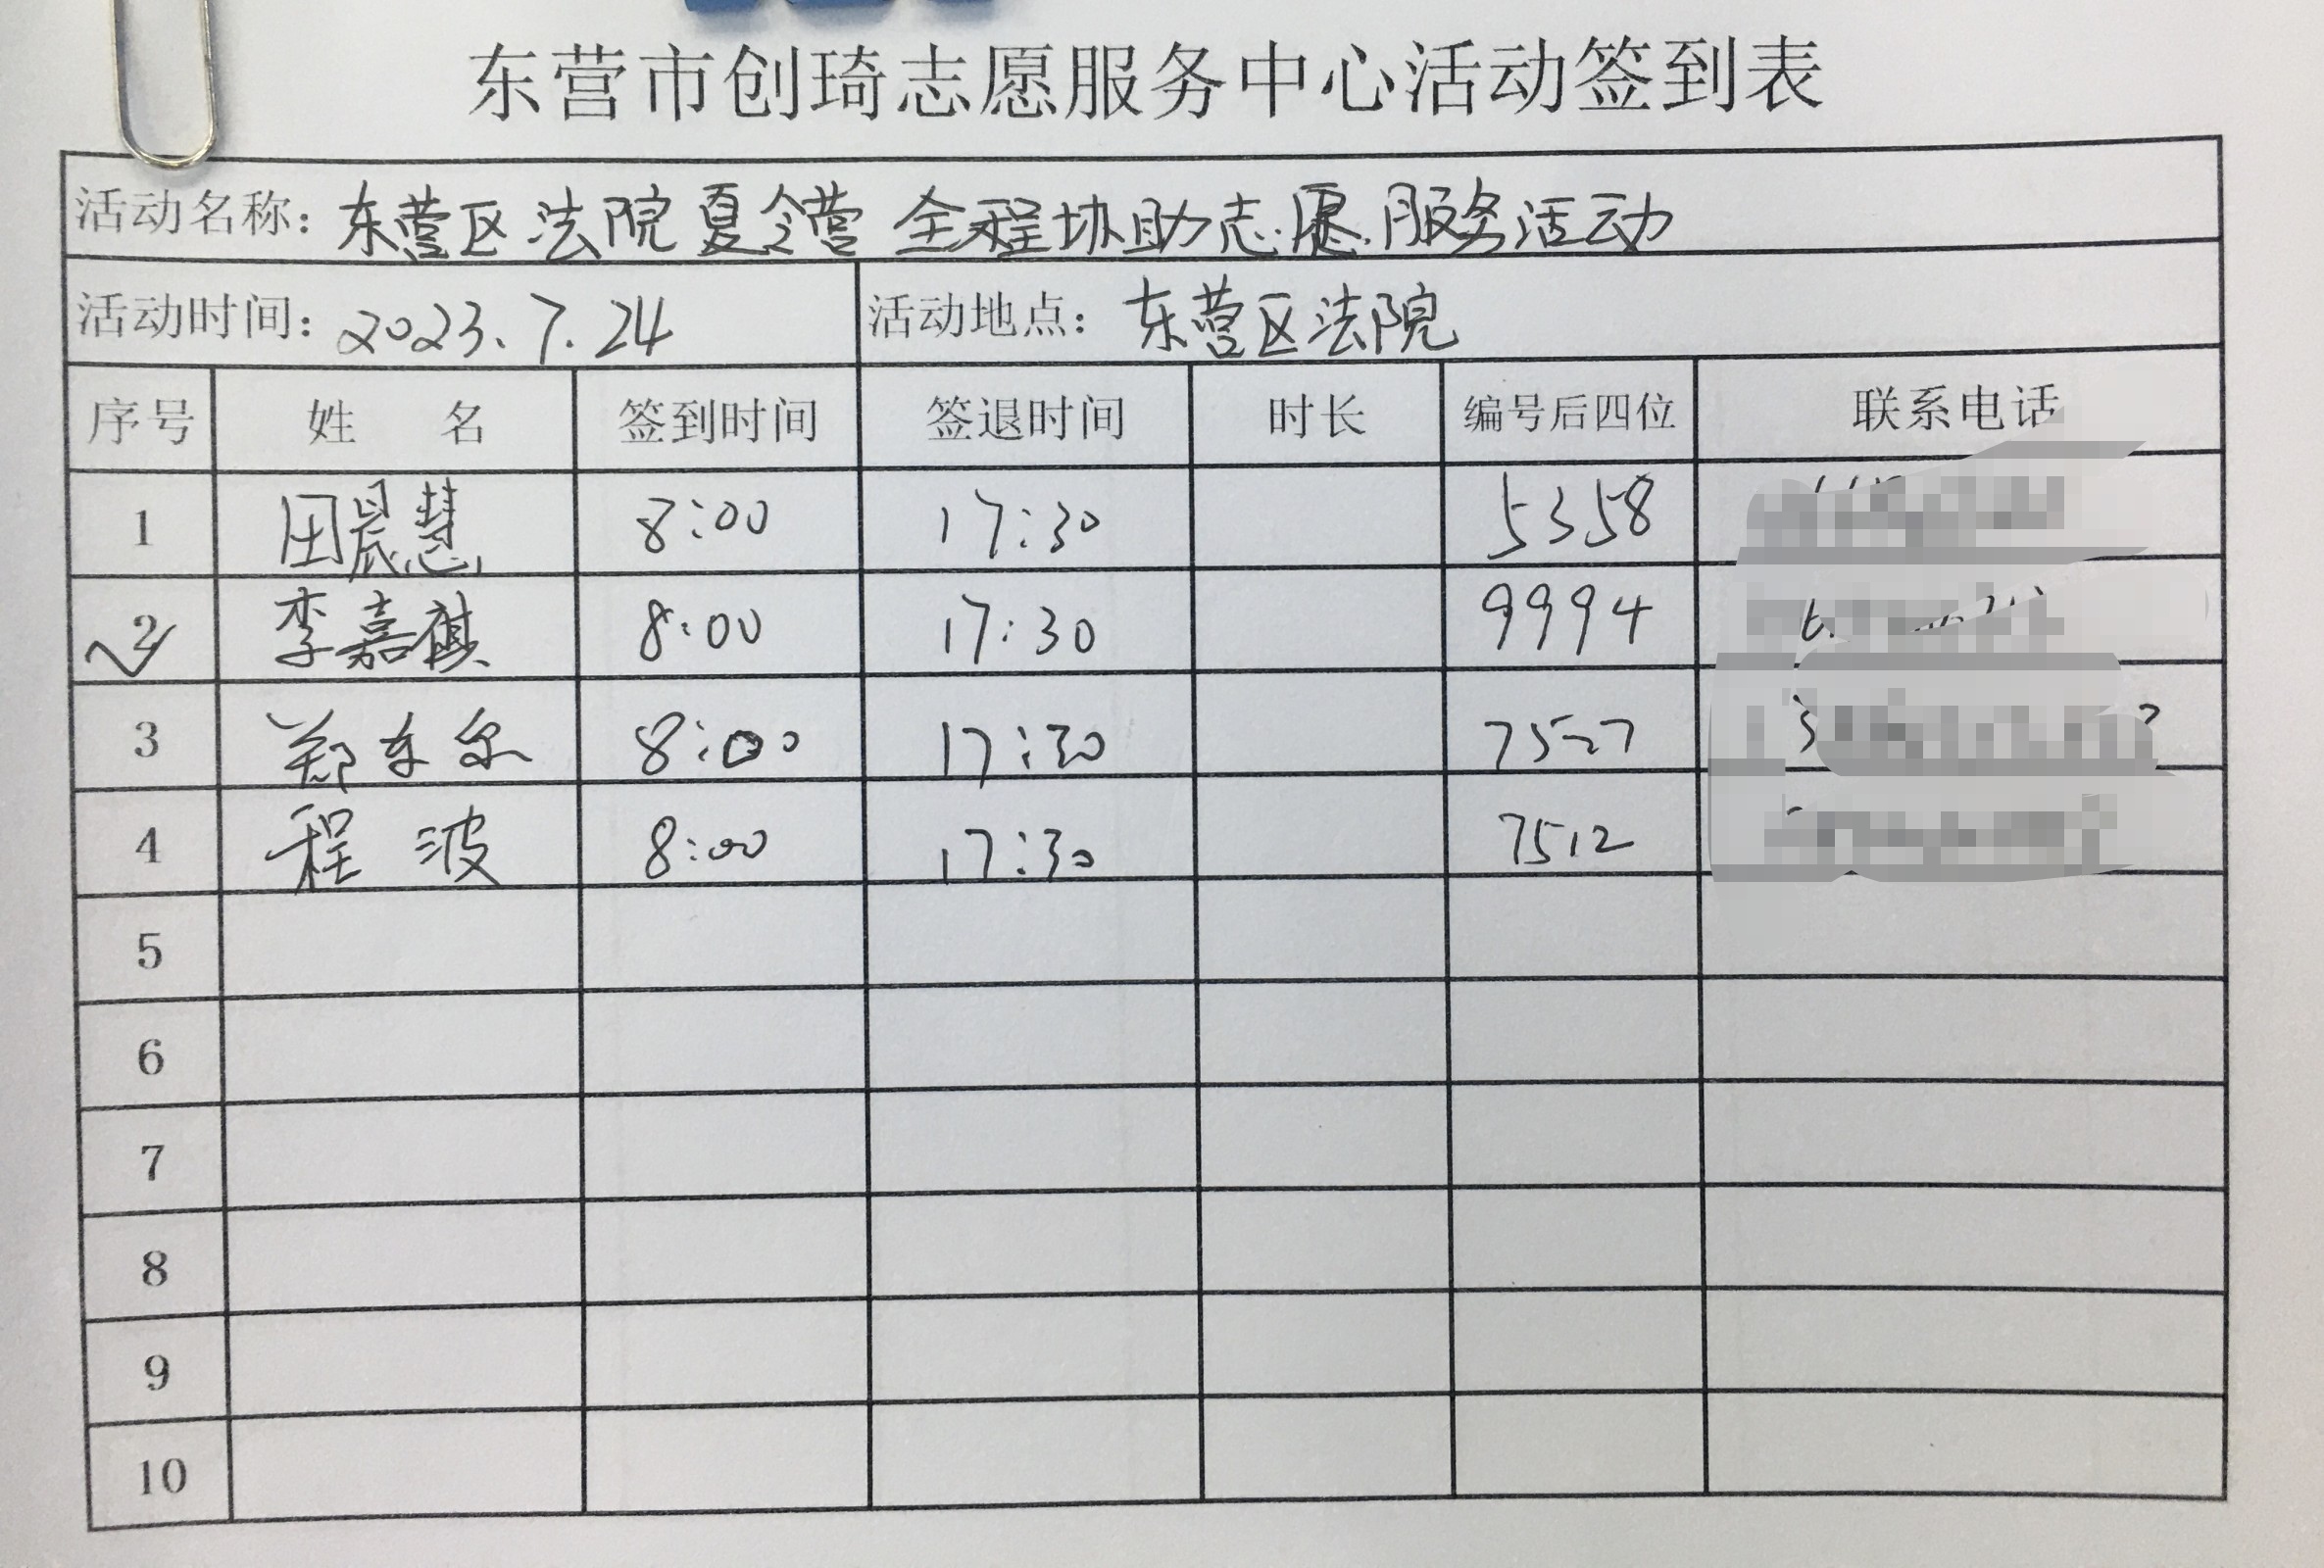 东营市创琦志愿服务中心活动签到表
活动名称：东营区法院夏令营 全程协助志愿服务活动
活动时间：2023.7.24 活动地点：东营区法院
序号 姓 名 签到时间 签退时间 时长 编号后四位 联系电话
1 田晨慧 8:00 17:30 5358
2 李嘉祺 8:00 17:30 9994
3 郑东 8:00 17:30 7527
4 程 波 8:00 17:30 7512
5
6
7
8
9
10